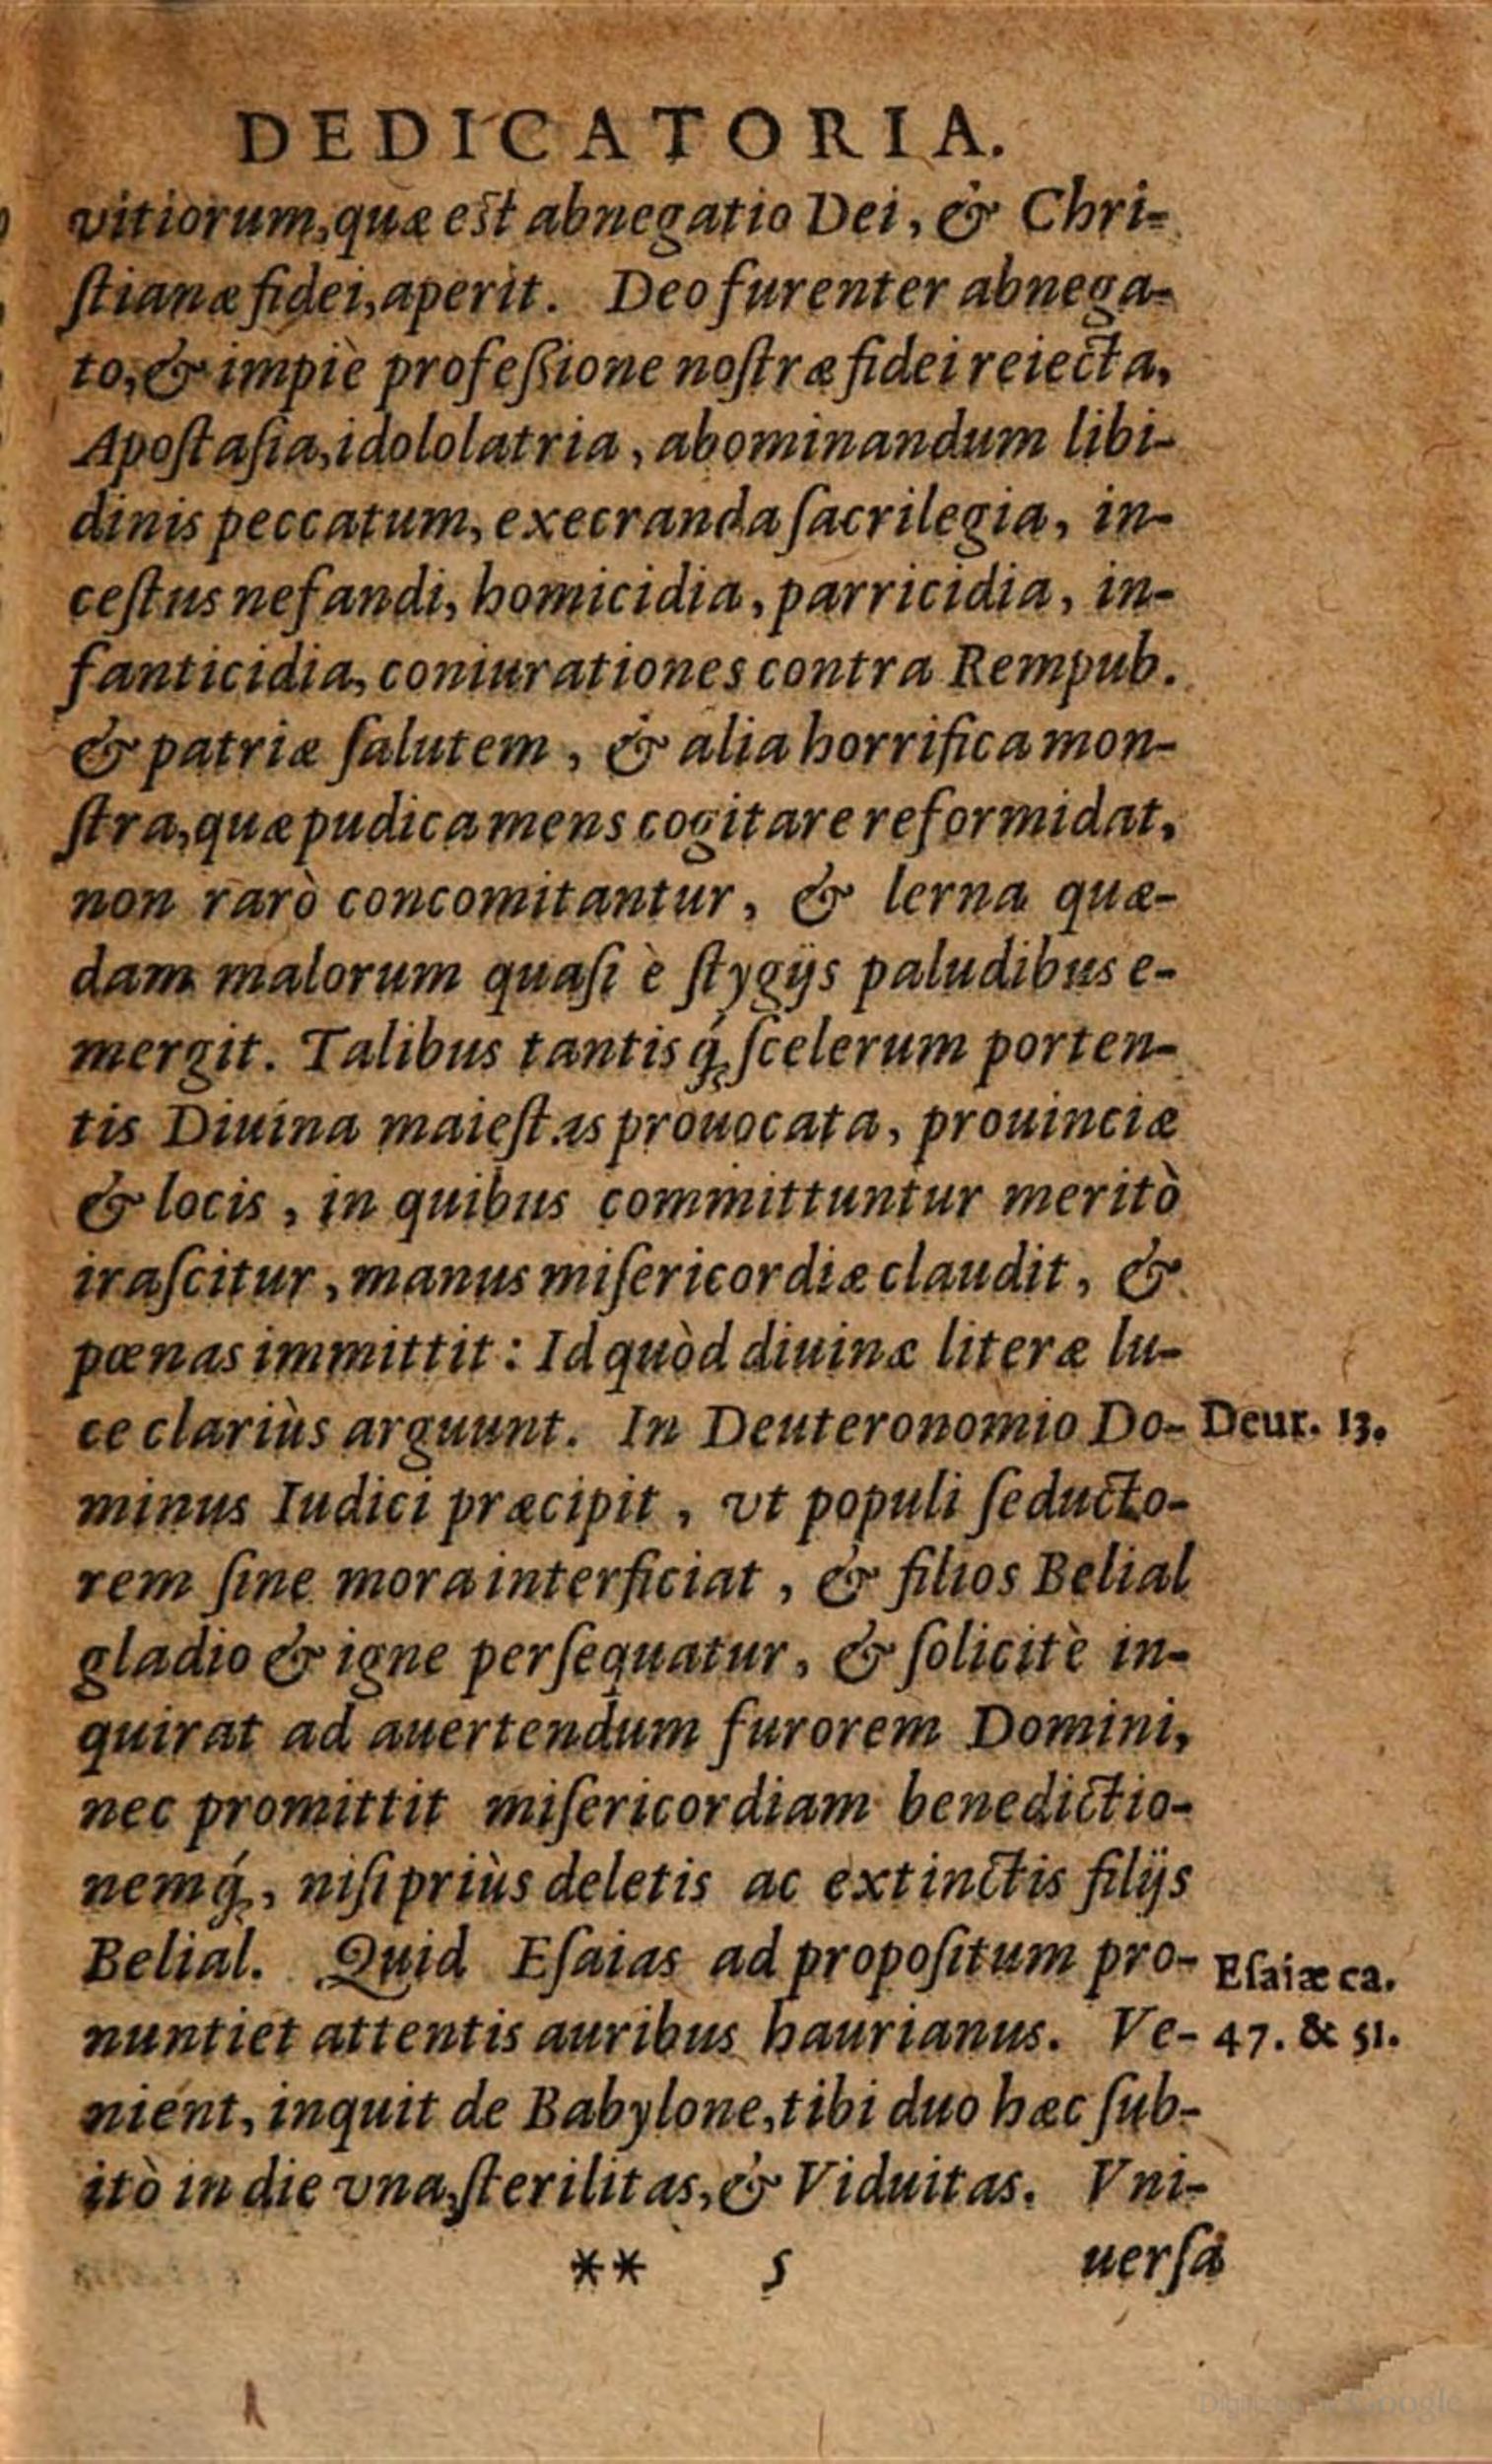 DEDICATORIA.
vitiorum, quæ est abnegatio Dei, & Chri-
ſtianæ fidei, aperit. Deo furenter abnega-
to, & impiè profeßione noſtræ fidei reiecta,
Apoſtaſia, idololatria, abominandum libi-
dinis peccatum, execranda ſacrilegia, in-
ceſtus nefandi, homicidia, parricidia, in-
fanticidia, coniurationes contra Rempub.
& patriæ ſalutem, & alia horrifica mon-
ſtra, quæ pudica mens cogitare reformidat,
non rarò concomitantur, & lerna quæ-
dam malorum quaſi è ſtygijs paludibus e-
mergit. Talibus tantisq́; ſcelerum porten-
tis Diuina maieſtas prouocata, prouinciæ
& locis, in quibus committuntur meritò
iraſcitur, manus miſericordiæ claudit, &
pœnas immittit: Id quòd diuinæ literæ lu-
ce clariùs arguunt. In Deuteronomio Do- Deut. 13.
minus Iudici præcipit, vt populi ſeducto-
rem ſine mora interficiat, & filios Belial
gladio & igne perſequatur, & ſolicitè in-
quirat ad auertendum furorem Domini,
nec promittit miſericordiam benedictio-
nemq́;, niſi priùs deletis ac extinctis filijs
Belial. Quid Eſaias ad propoſitum pro- Eſaiæ ca.
nuntiet attentis auribus haurianus. Ve- 47. & 51.
nient, inquit de Babylone, tibi duo hæc ſub-
itò in die vna, ſterilitas, & Viduitas. Vni-
** 5 uerſa